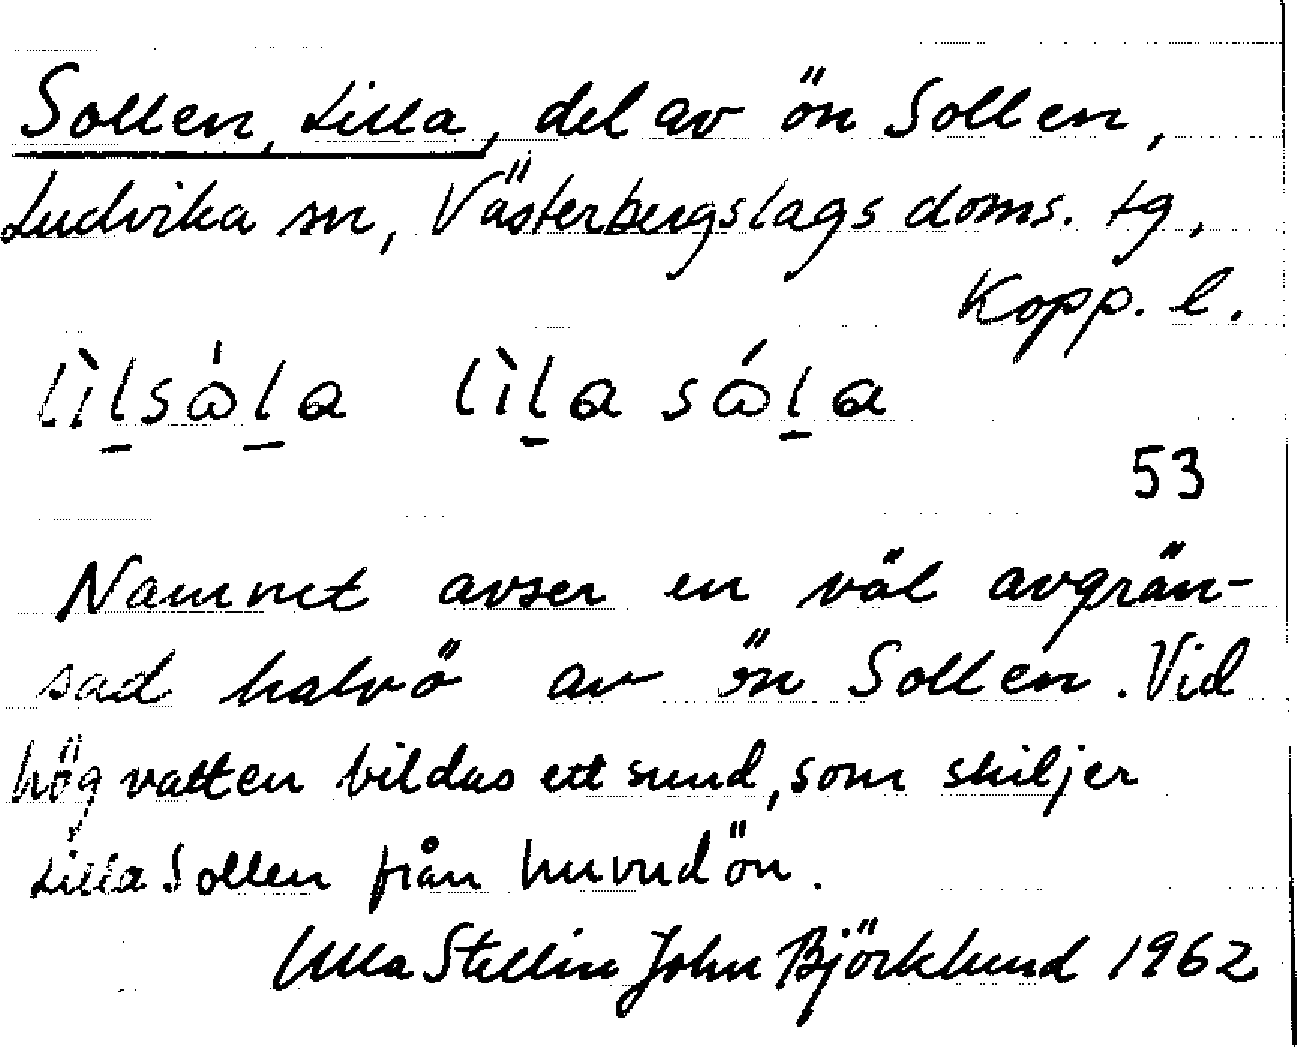 Sollen, Lilla, del av ön Sollen,
Ludvika sn, Västerbergslags doms. tg,
Kopp. l.
lìl̠sɷ́l̠a lìl̠a sɷ́l̠a
53
Namnet avser en väl avgrän-
sad halvö av ön Sollen. Vid
högvatten bildas ett sund, som skiljer
Lilla Sollen från huvudön.
Ulla Stellin John Björklund 1962